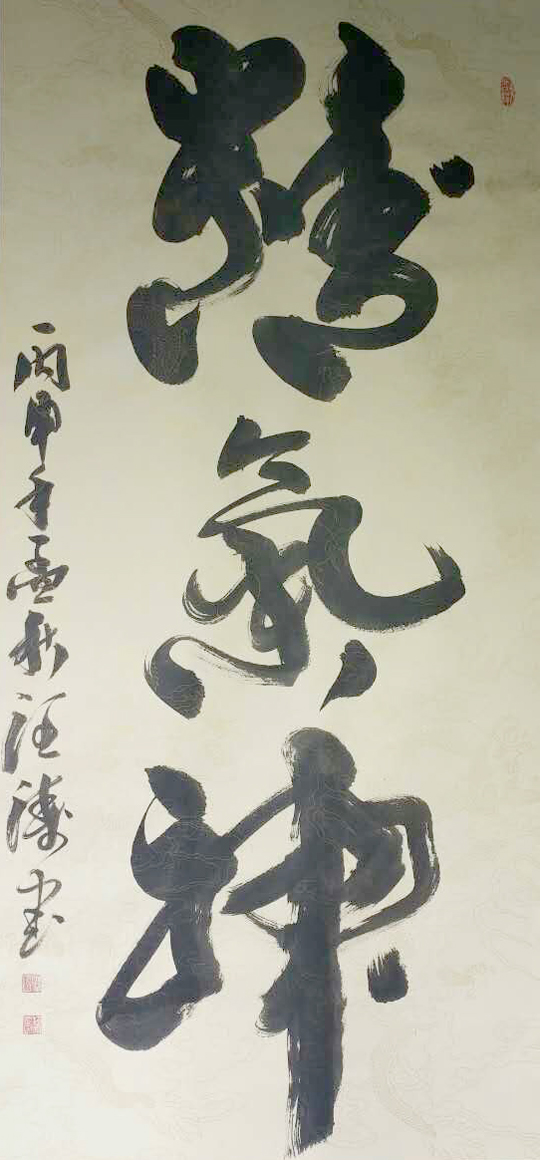 精氣神
丙申年孟秋汪濤書